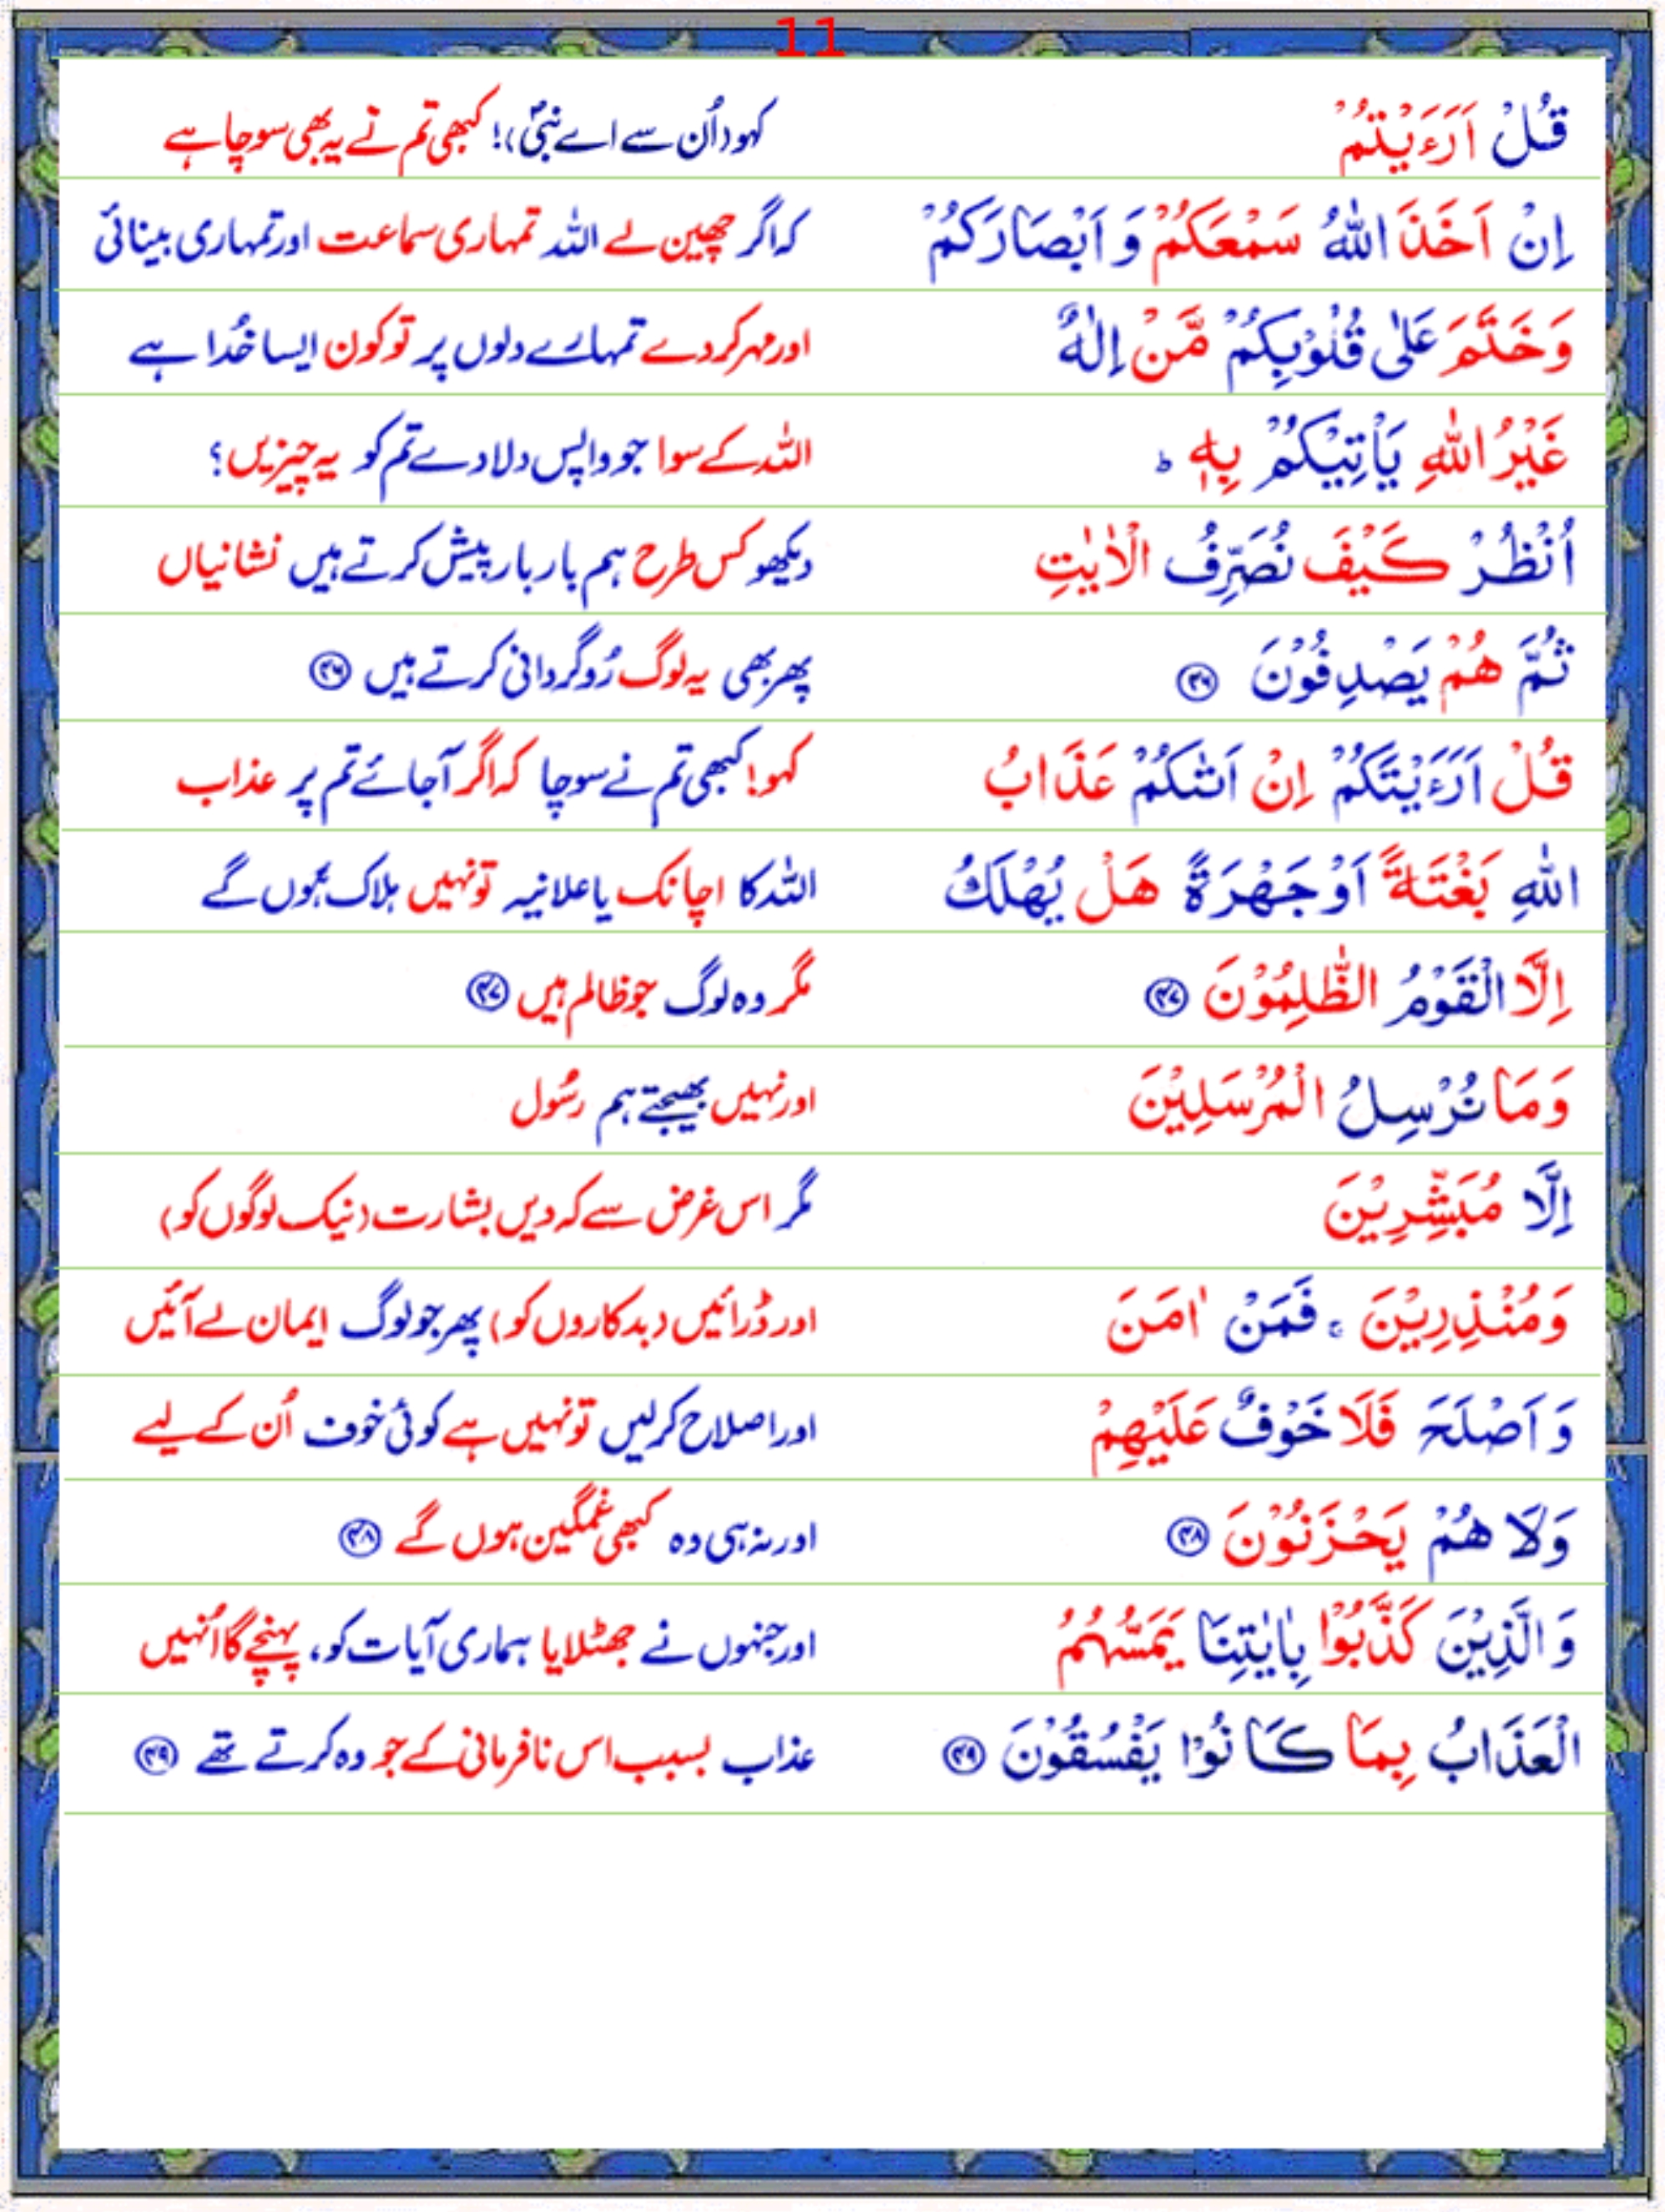 11
قُلْ اَرَءَيْتُمْ کہو(اُن سے اے نبیؐ)! کبھی تم نے یہ بھی سوچا ہے
اِنْ اَخَذَ اللّٰهُ سَمْعَكُمْ وَ اَبْصَارَكُمْ کہ اگر چھین لے اللہ تمہاری سماعت اور تمہاری بینائی
وَخَتَمَ عَلٰى قُلُوْبِكُمْ مَّنْ اِلٰهٌ اور مہر کر دے تمہارے دلوں پر تو کون ایسا خُدا ہے
غَيْرُ اللّٰهِ يَاْتِيْكُمْ بِهٖ ؕ اللہ کے سوا جو واپس دلا دے تم کو یہ چیزیں؟
اُنْظُرْ كَيْفَ نُصَرِّفُ الْاٰيٰتِ دیکھو کس طرح ہم بار بار پیش کرتے ہیں نشانیاں
ثُمَّ هُمْ يَصْدِفُوْنَ ۴۶ پھر بھی یہ لوگ رُوگردانی کرتے ہیں ۴۶
قُلْ اَرَءَيْتَكُمْ اِنْ اَتٰىكُمْ عَذَابُ کہو! کبھی تم نے سوچا کہ اگر آجائے تم پر عذاب
اللّٰهِ بَغْتَةً اَوْ جَهْرَةً هَلْ يُهْلَكُ اللہ کا اچانک یا علانیہ تو نہیں ہلاک ہوں گے
اِلَّا الْقَوْمُ الظّٰلِمُوْنَ ۴۷ مگر وہ لوگ جو ظالم ہیں ۴۷
وَمَا نُرْسِلُ الْمُرْسَلِيْنَ اور نہیں بھیجتے ہم رسُول
اِلَّا مُبَشِّرِيْنَ مگر اس غرض سے کہ دیں بشارت (نیک لوگوں کو)
وَمُنْذِرِيْنَ ۚ فَمَنْ اٰمَنَ اور ڈرائیں (بدکاروں کو) پھر جو لوگ ایمان لے آئیں
وَ اَصْلَحَ فَلَا خَوْفٌ عَلَيْهِمْ اور اصلاح کرلیں تو نہیں ہے کوئی خوف اُن کے لیے
وَلَا هُمْ يَحْزَنُوْنَ ۴۸ اور نہ ہی وہ کبھی غمگین ہوں گے ۴۸
وَ الَّذِيْنَ كَذَّبُوْا بِاٰيٰتِنَا يَمَسُّهُمُ اور جنہوں نے جھٹلایا ہماری آیات کو، پہنچے گا اُنہیں
الْعَذَابُ بِمَا كَانُوْا يَفْسُقُوْنَ ۴۹ عذاب بسبب اس نافرمانی کے جو وہ کرتے تھے ۴۹